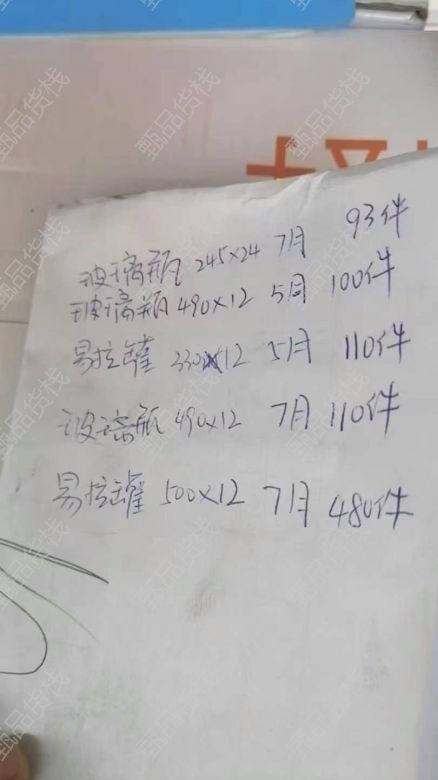 玻璃瓶 245×24 7月 93件
玻璃瓶 490×12 5月 100件
易拉罐 330×12 5月 110件
玻璃瓶 490×12 7月 110件
易拉罐 500×12 7月 480件
甄品货栈